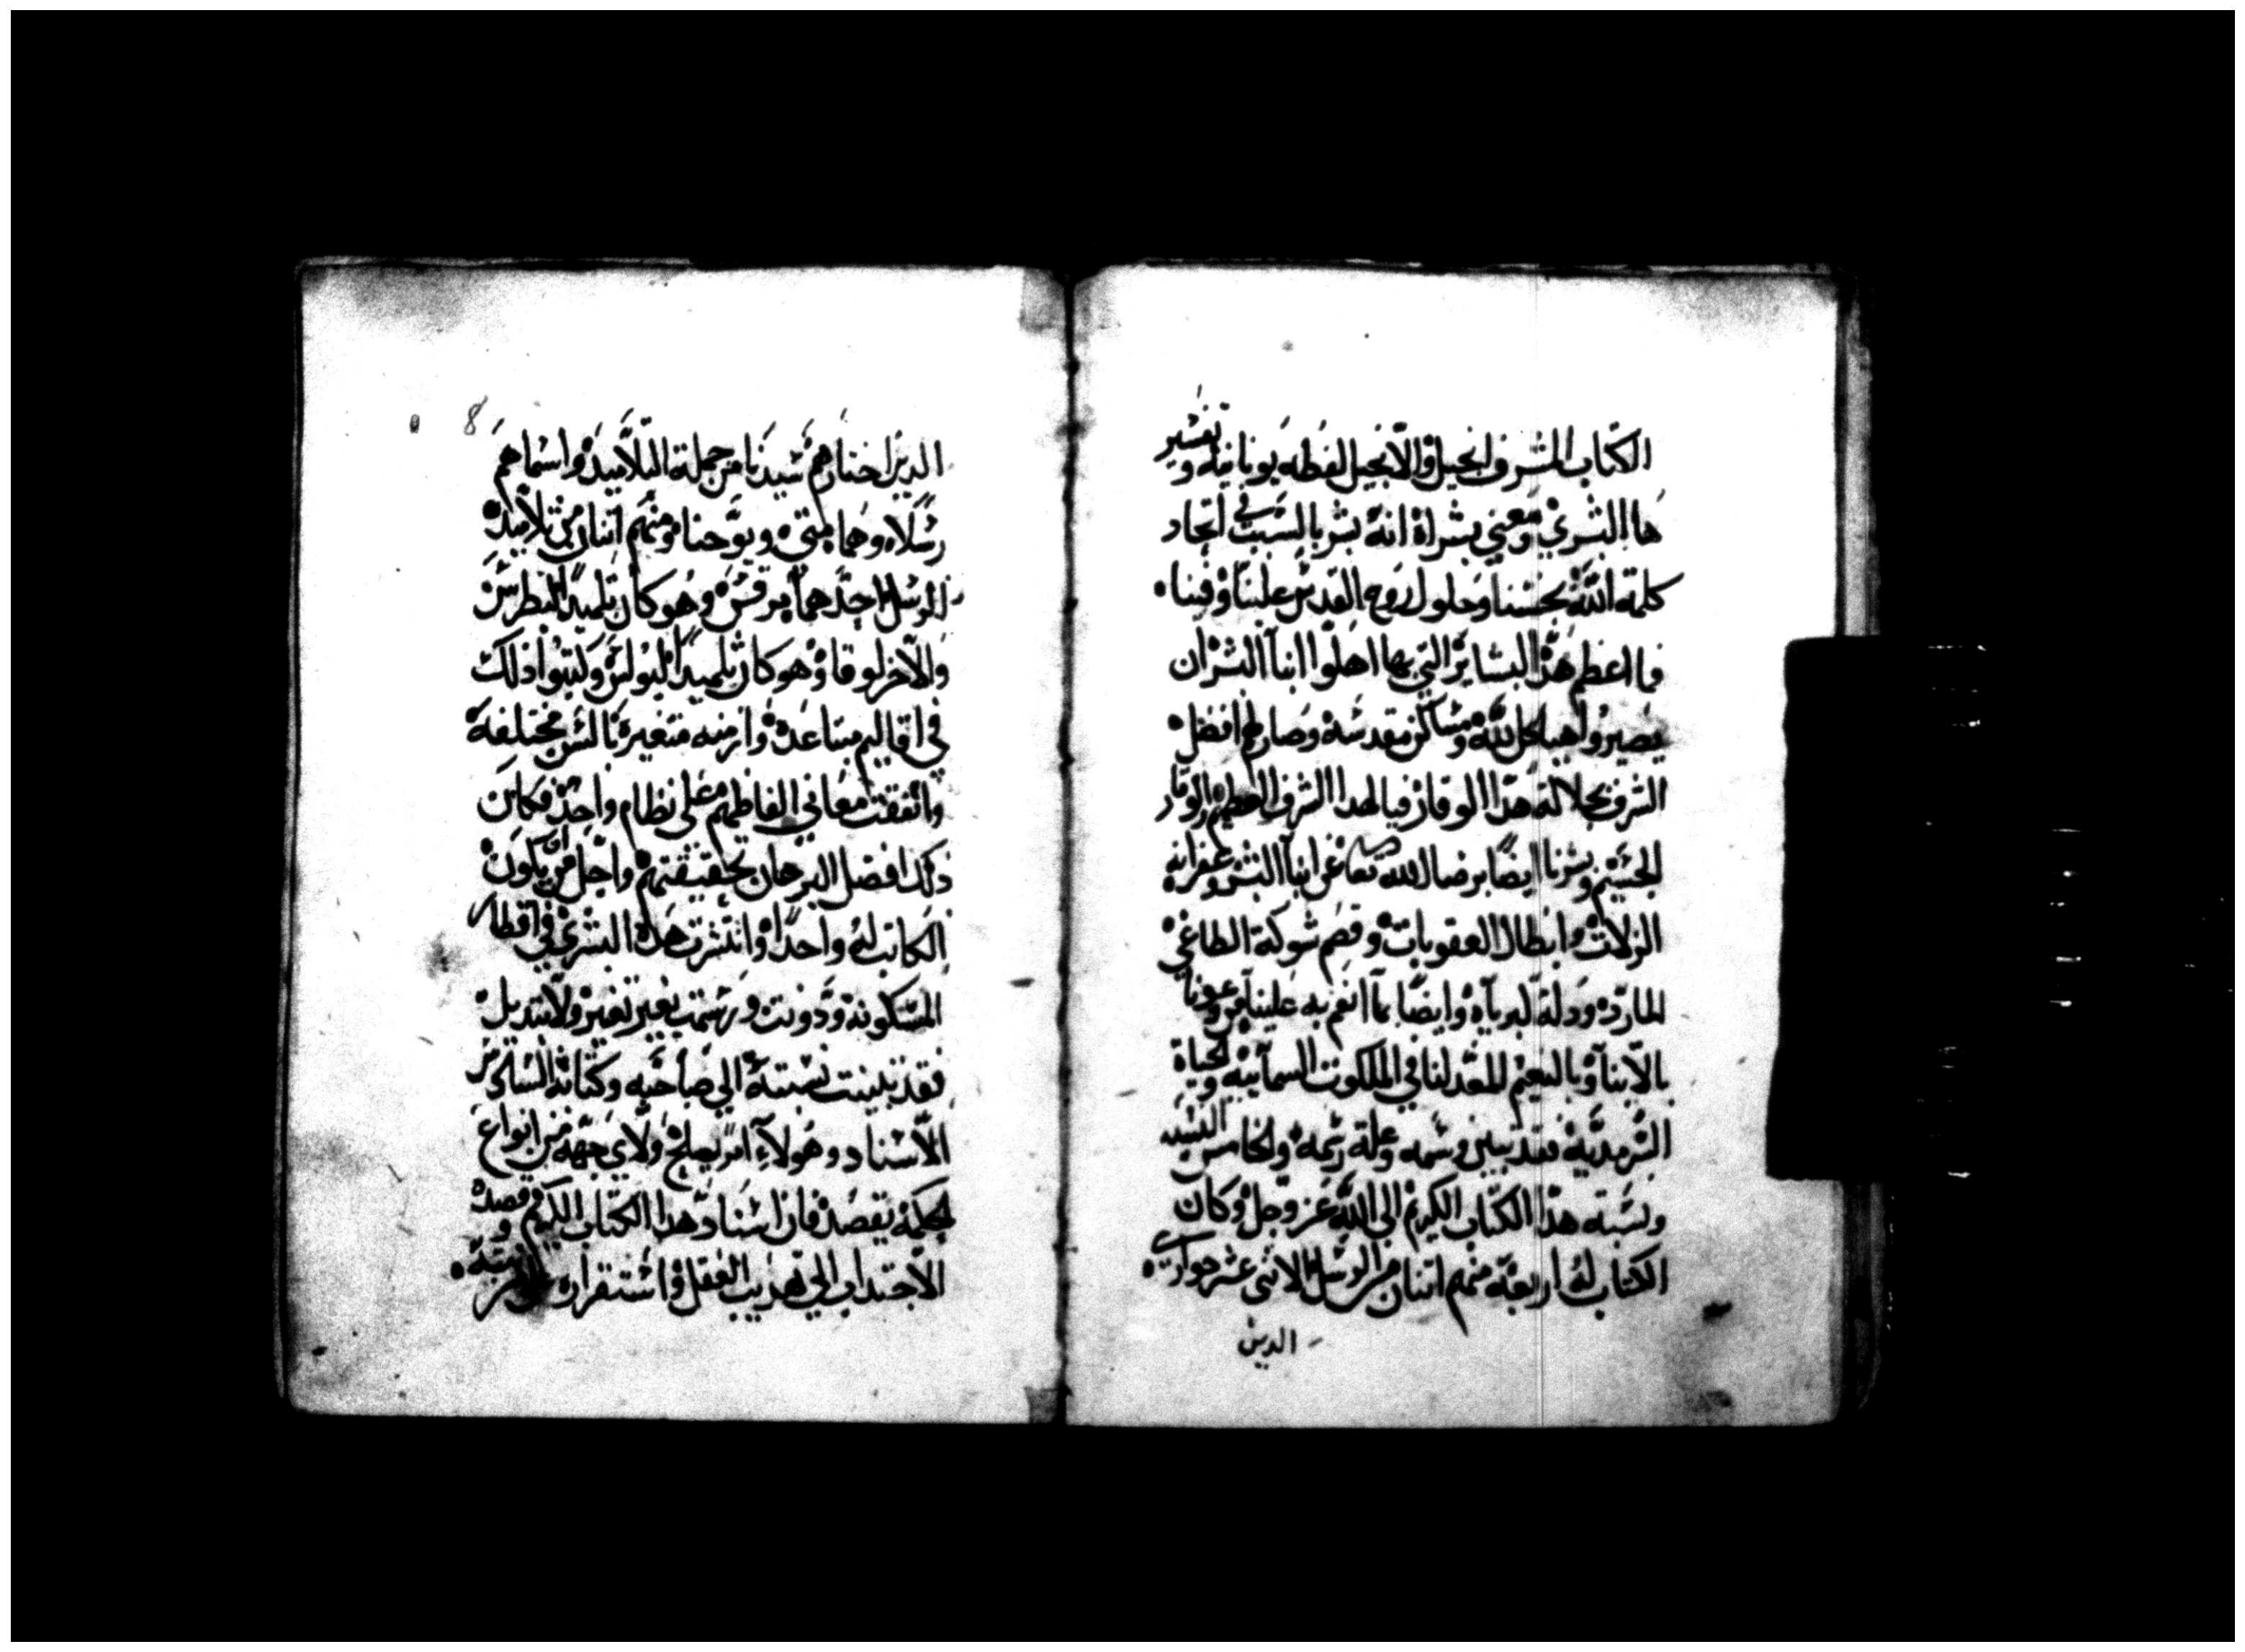 الكتاب المشرف انجيل والانجيل لفظه يونانيه وتفسير
ها البشري ومعني بشراة انه بشر بالسبب في اتحاد
كلمة الله بجسنا وحلول روح القدس علينا وفينا
فما اعظم هذا البشاير التي بها اهلوا ابنا البشر ان
يصيروا هياكل لله ومساكن مقدسه وصار لهم افضل
الشرف بجلالة هذا الوقار فيالهدا الشرف العظيم والوقار
الجسيم وبشرنا ايضا برضا الله تعا عن ابنا البشر وغفرانه
الزلات وابطال العقوبات وقصم شوكة الطاغي
المارد ودلة كبرياه وايضا بما انعم به علينا من وعونا
بالابنا وبالنعيم المعد لنا في الملكوت السمآييه والحياة
السرمديه فقد تبين وسمه وعلة رسمه والخامس النسبه
ونسبته هذا الكتاب الكريم الي الله عز وجل وكان
الكتاب له اربعة منهم اتنان من الرسل الاثني عشر حواري
الدين
8
الدين اختارهم سيدنا من جملة التلاميد واسماهم
رسلا وهما متي ويوحنا ومنهم اتنان من تلاميد
الرسل احدهما مرقس وهو كان تلميدا لبطرس
والاخر لوقا وهو كان تلميدا لبولس وكتبوا ذلك
في اقاليم متباعدة وازمنه متغيرة بالسن مختلفة
واتفقت معاني الفاظهم علي نظام واحد فكان
ذلك افضل البرهان بحقيقتهم واجل من ان يكون
الكاتب له واحدا وانتشرت هذه البشري في اقطار
المسكونه ودونت ورسمت بغير تغير ولا تبديل
فقد تبينت نسبته الي صاحبه وكتابه السادس
الاسناد وهولاء امر يصلح ولاي جهة من انواع
الحكمة يقصد فان اسناد هذا الكتاب الكريم وقصده
الاجتداب الي تهديب العقل واستقراره